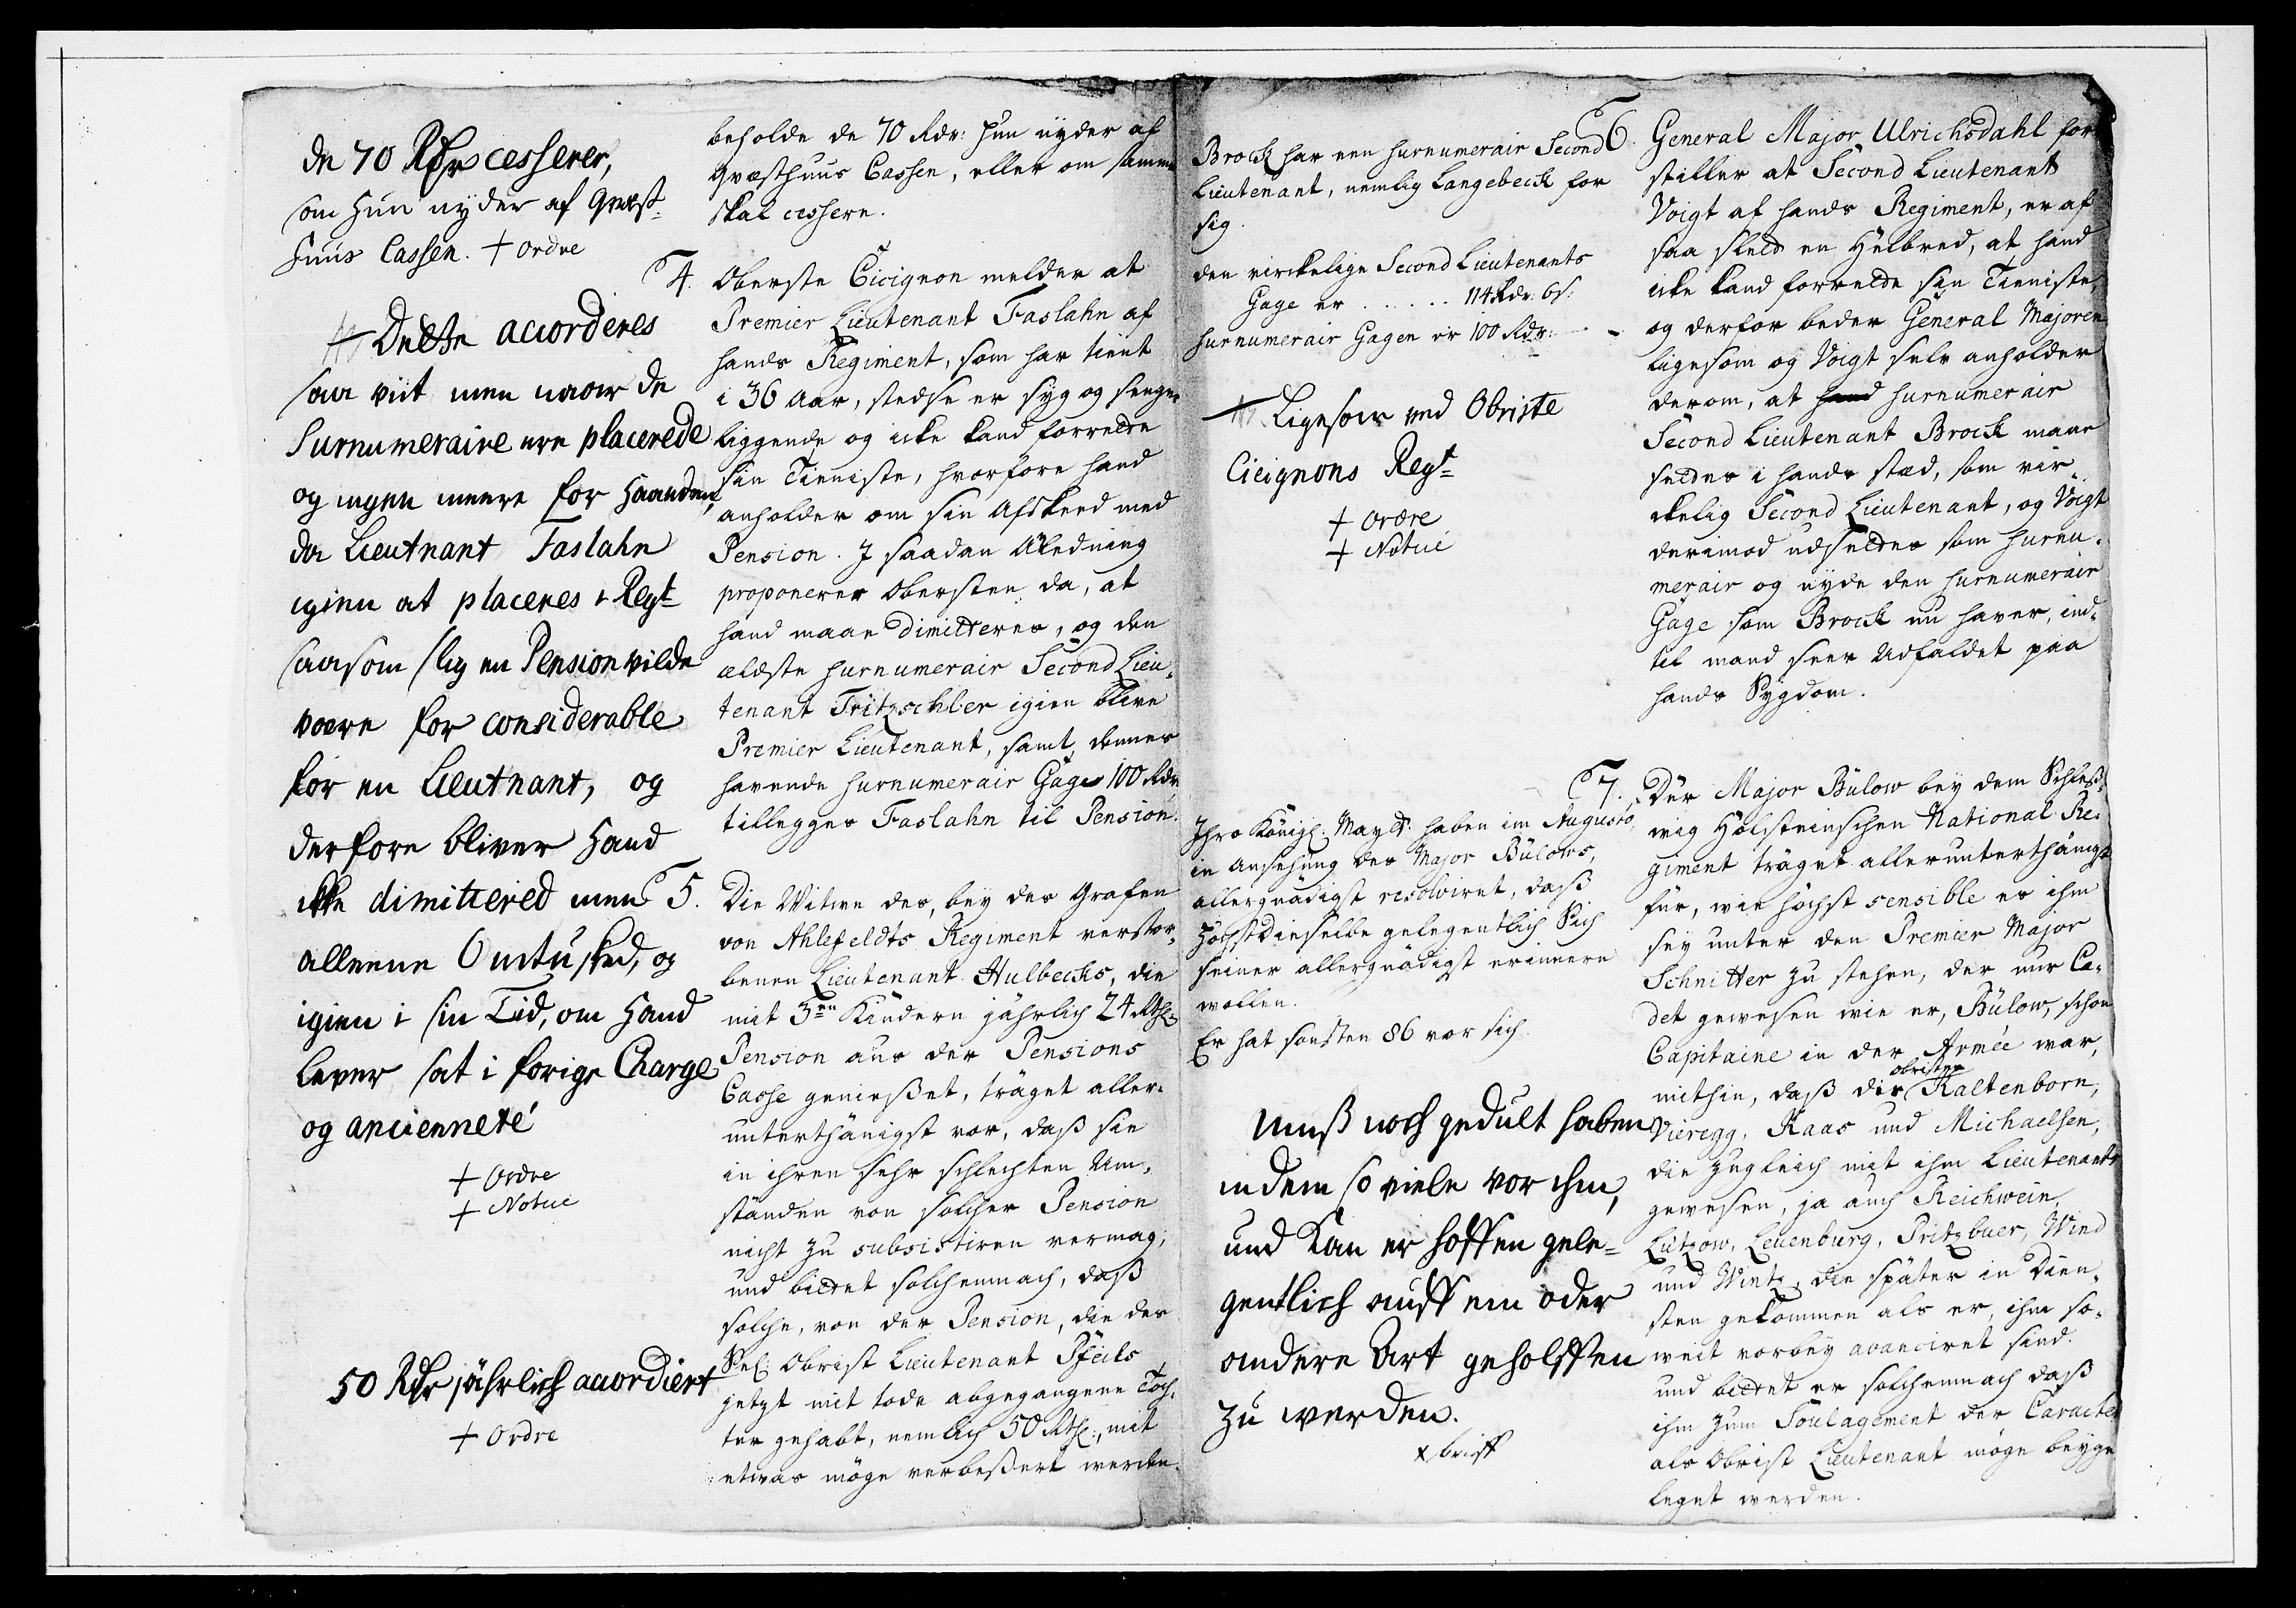 de 70 Rdr cesserer,
som Hun nyder af Qvæst-
Huus Cassen. + Ordre
+ Dette accorderes
saa viit men naar de
Surnumeraire ere placerede
og ingen meere for Haanden,
da Lieutnant Faslahn
igien at placeres v Regt
saasom slig en Pension vilde
være for considerable
for en Lieutnant, og
derfore bliver Hand
ikke dimittered men
alleene Omtusked, og
igien i sin Tid, om Hand
lever sat i forige Charge
og ancienneté
+ Ordre
+ Notue
50 Rdr jährlich accordiert
+ Ordre
beholde de 70 Rdr: hun nyder af
Qvæsthuus Cassen, eller om samme
skal cessere.
4. Oberste Cicignon melder at
Premier Lieutenant Faslahn af
hands Regiment, som har tient
i 36 Aar, stedse er syg og senge-
liggende og icke kand forrette
sin Tieniste, hvorfore hand
anholder om sin Afskeed med
Pension. I saadan Anledning
proponerer Obersten da, at
hand maae dimitteres, og den
ældste surnumerair Second Lieu-
tenant Fritzschler igien blive
Premier Lieutenant, samt dennes
havende surnumerair Gage 100 Rdr
tillegges Faslahn til Pension.
5. Die Witwe des, bey des Grafen
von Ahlefeldts Regiment verstor-
benen Lieutenant Hulbecks, die
mit 3en Kindern jährlich 24 Rthl
Pension aus der Pensions
Casse genießet, träget aller-
unterthänigst vor, daß sie
in ihren sehr schlechten Um-
ständen von solcher Pension
nicht zu subsistiren vermag,
und bittet solchemnach, daß
solche, von der Pension, die des
Sel: Obrist Lieutenant Pfeils
jetzt mit tode abgegangene Toch-
ter gehabt, nemlich 50 Rthl:, mit
etwas möge verbeßert werden.
Brock har een surnumerair Second
Lieutenant, nemlig Langebeck for
sig.
den virckelige Second Lieutenants
Gage er . . . . . . 114 Rdr: 6 s:
surnumerair Gagen er 100 Rdr: -
+ Ligesaa ved Obriste
Cicignons Regt
+ Ordre
+ Notue
Ihro Königl: Mayt: haben im Augusto,
in Ansehung des Major Bülows,
allergnädigst resolviret, daß
Höchst Dieselbe gelegentlich Sich
seiner allergnädigst erinnern
wollen.
Er hat sonsten 86 vor sich.
Muß noch gedult haben
indem so viele vor ihm,
und kan er hoffen gele-
gentlich auff ein oder
andere Art geholffen
zu werden.
x brieff
6. General Major Ulrichsdahl fore-
stiller at Second Lieutenant
Voigt af hands Regiment, er af
saa slett en Helbred, at hand
icke kand forrette sin Tieniste,
og derfor beder General Majoren
ligesom og Voigt selv anholder
derom, at hand surnumerair
Second Lieutenant Brock maae
settes i hands stæd, som vir-
ckelig Second Lieutenant, og Voigt
derimod udsettes som surnu-
merair og nyde den surnumerair
Gage som Brock nu haver, ind-
til mand seer Udfaldet paa
hands Sygdom.
7. Der Major Bülow bey dem Schleß-
wig Holsteinschen National Re-
giment träget allerunterthänigst
für, wie höchst sensible es ihm
sey unter den Premier Major
Schnitter zu stehen, der nur Ca-
det gewesen wie er, Bülow, schon
Capitaine in der Armée war,
mithin, daß die obristen Kaltenborn,
Vieregg, Kaas und Michaelsen,
die zugleich mit ihm Lieutenants
gewesen, ja auch Reichwein,
Lützow, Leuenburg, Pritzbuer, Wind
und Wintz, die später in Dien-
sten gekommen als er, ihm so-
weit vorbey avanciret sind.
und bittet er solchemnach daß
ihm zum Soulagement der Caracter
als Obrist Lieutenant möge beyge
leget werden.